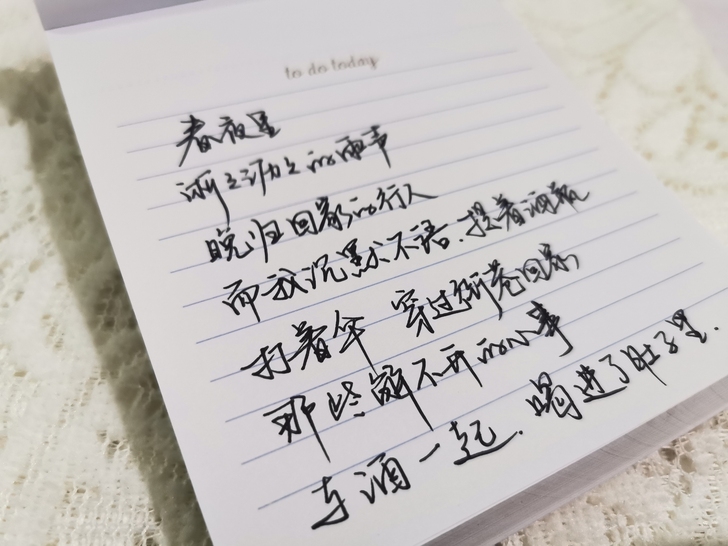 to do today
春夜里
淅々沥々的雨声
晚归回家的行人
而我沉默不语、提着酒瓶
打着伞 穿过街巷回家
那些解不开的小事
与酒一起、喝进了肚子里.